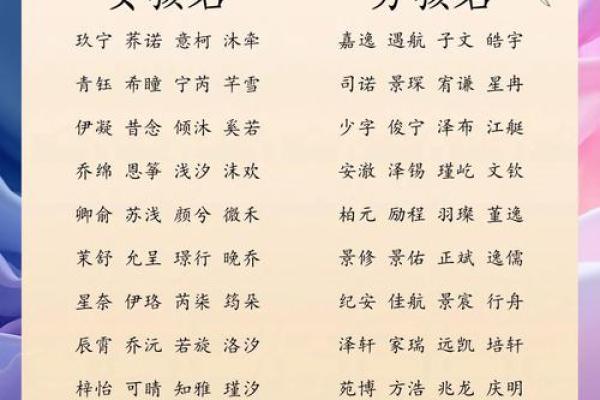 女孩名
玖宁 荞诺 意柯 沐牵
青钰 希瞳 宁芮 芊雪
伊凝 昔念 倾沐 奚若
乔绵 恩筝 浅汐 沫欢
卿俞 苏浅 颜兮 微禾
茉舒 允呈 璟行 晚乔
星奈 伊珞 芮柒 筠朵
辰霄 乔沅 若旋 洛汐
梓怡 可晴 知雅 瑾汐
男孩名
嘉逸 遇航 子文 皓宇
司诺 景琛 宥谦 星冉
少字 俊宁 泽布 江艇
安澈 泽锡 瑾屹 文钦
柏元 励程 羽璨 董逸
景修 景佑 正斌 逸儒
纪安 佳航 景宸 行舟
泽轩 家瑞 远凯 培轩
苑博 方浩 兆龙 庆明